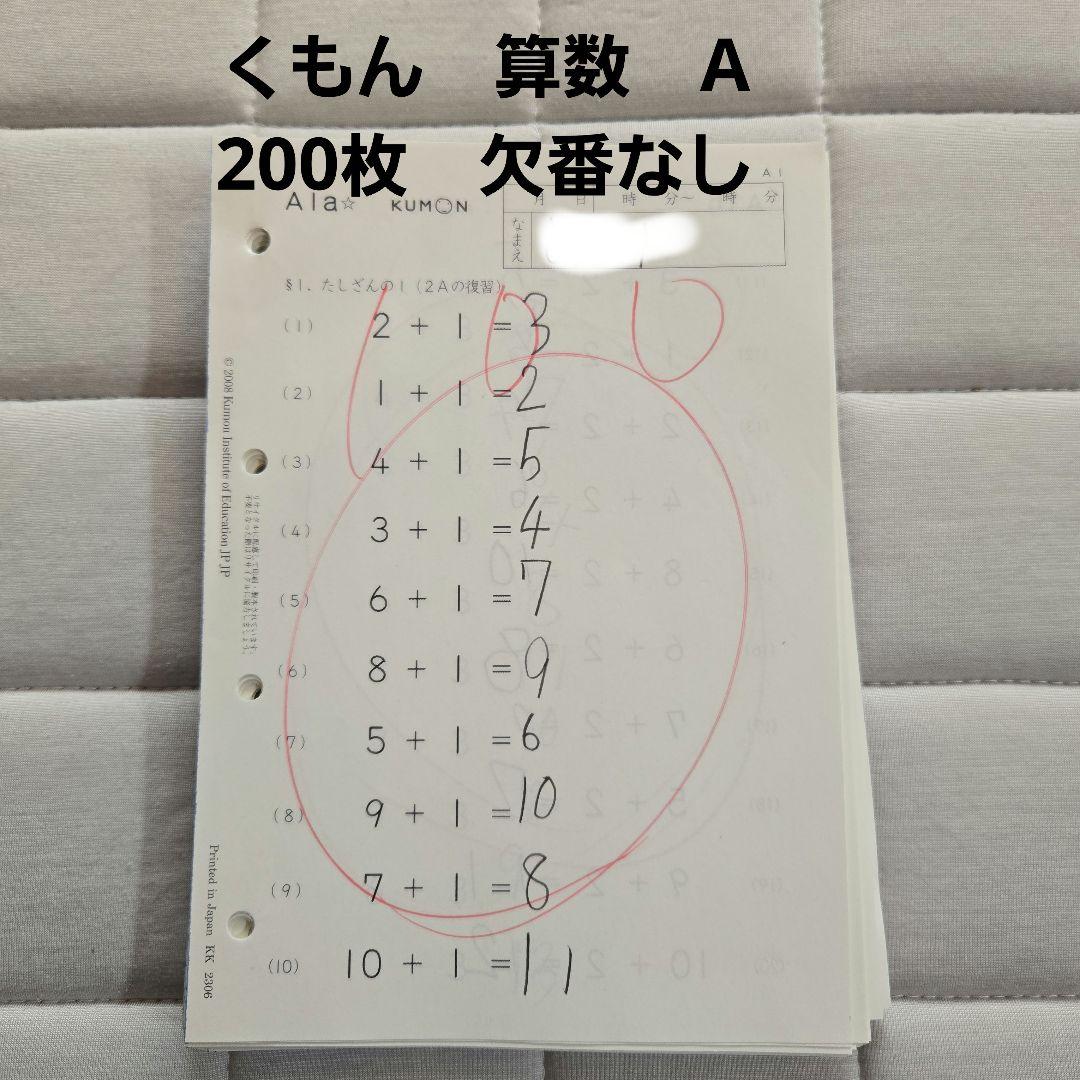 くもん　算数　A
200枚　欠番なし
A1
A1a☆ KUMON
月 日 時 分〜 時 分
なまえ
§1. たしざんの1（2Aの復習）
100
(1) 2 + 1 = 3
(2) 1 + 1 = 2
(3) 4 + 1 = 5
(4) 3 + 1 = 4
(5) 6 + 1 = 7
(6) 8 + 1 = 9
(7) 5 + 1 = 6
(8) 9 + 1 = 10
(9) 7 + 1 = 8
(10) 10 + 1 = 11
© 2008 Kumon Institute of Education JP JP
Printed in Japan KK 2306